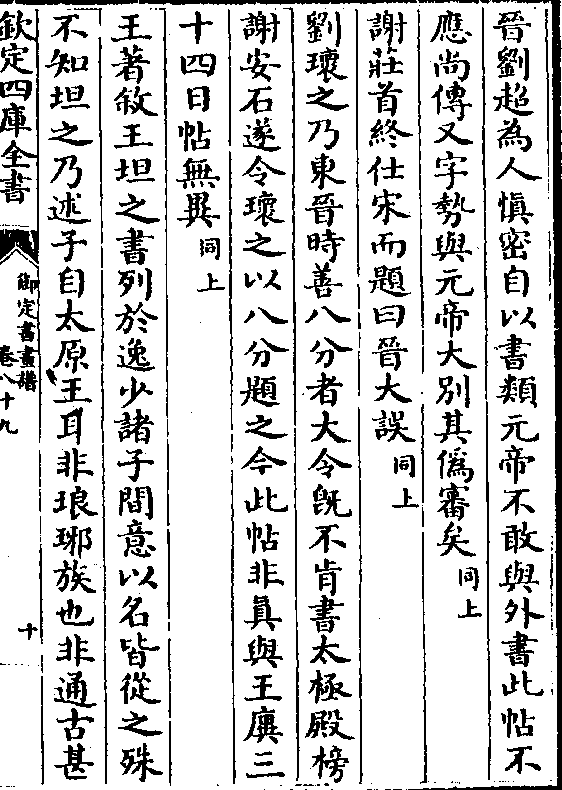 晉劉超為人慎密自以書類元帝不敢與外書此帖不
應尚傳又字勢與元帝大別其僞審矣同上
謝莊首終仕宋而題曰晉大誤同上
劉瓌之乃東晉時善八分者大令旣不肯書太極殿榜
謝安石遂令瓌之以八分題之今此帖非眞與王廙三
十四日帖無異同上
王著敘王坦之書列於逸少諸子間意以名皆從之殊
不知坦之乃述子自太原王耳非琅琊族也非通古甚
欽定四庫全書
御定書畫譜
卷八十九
十